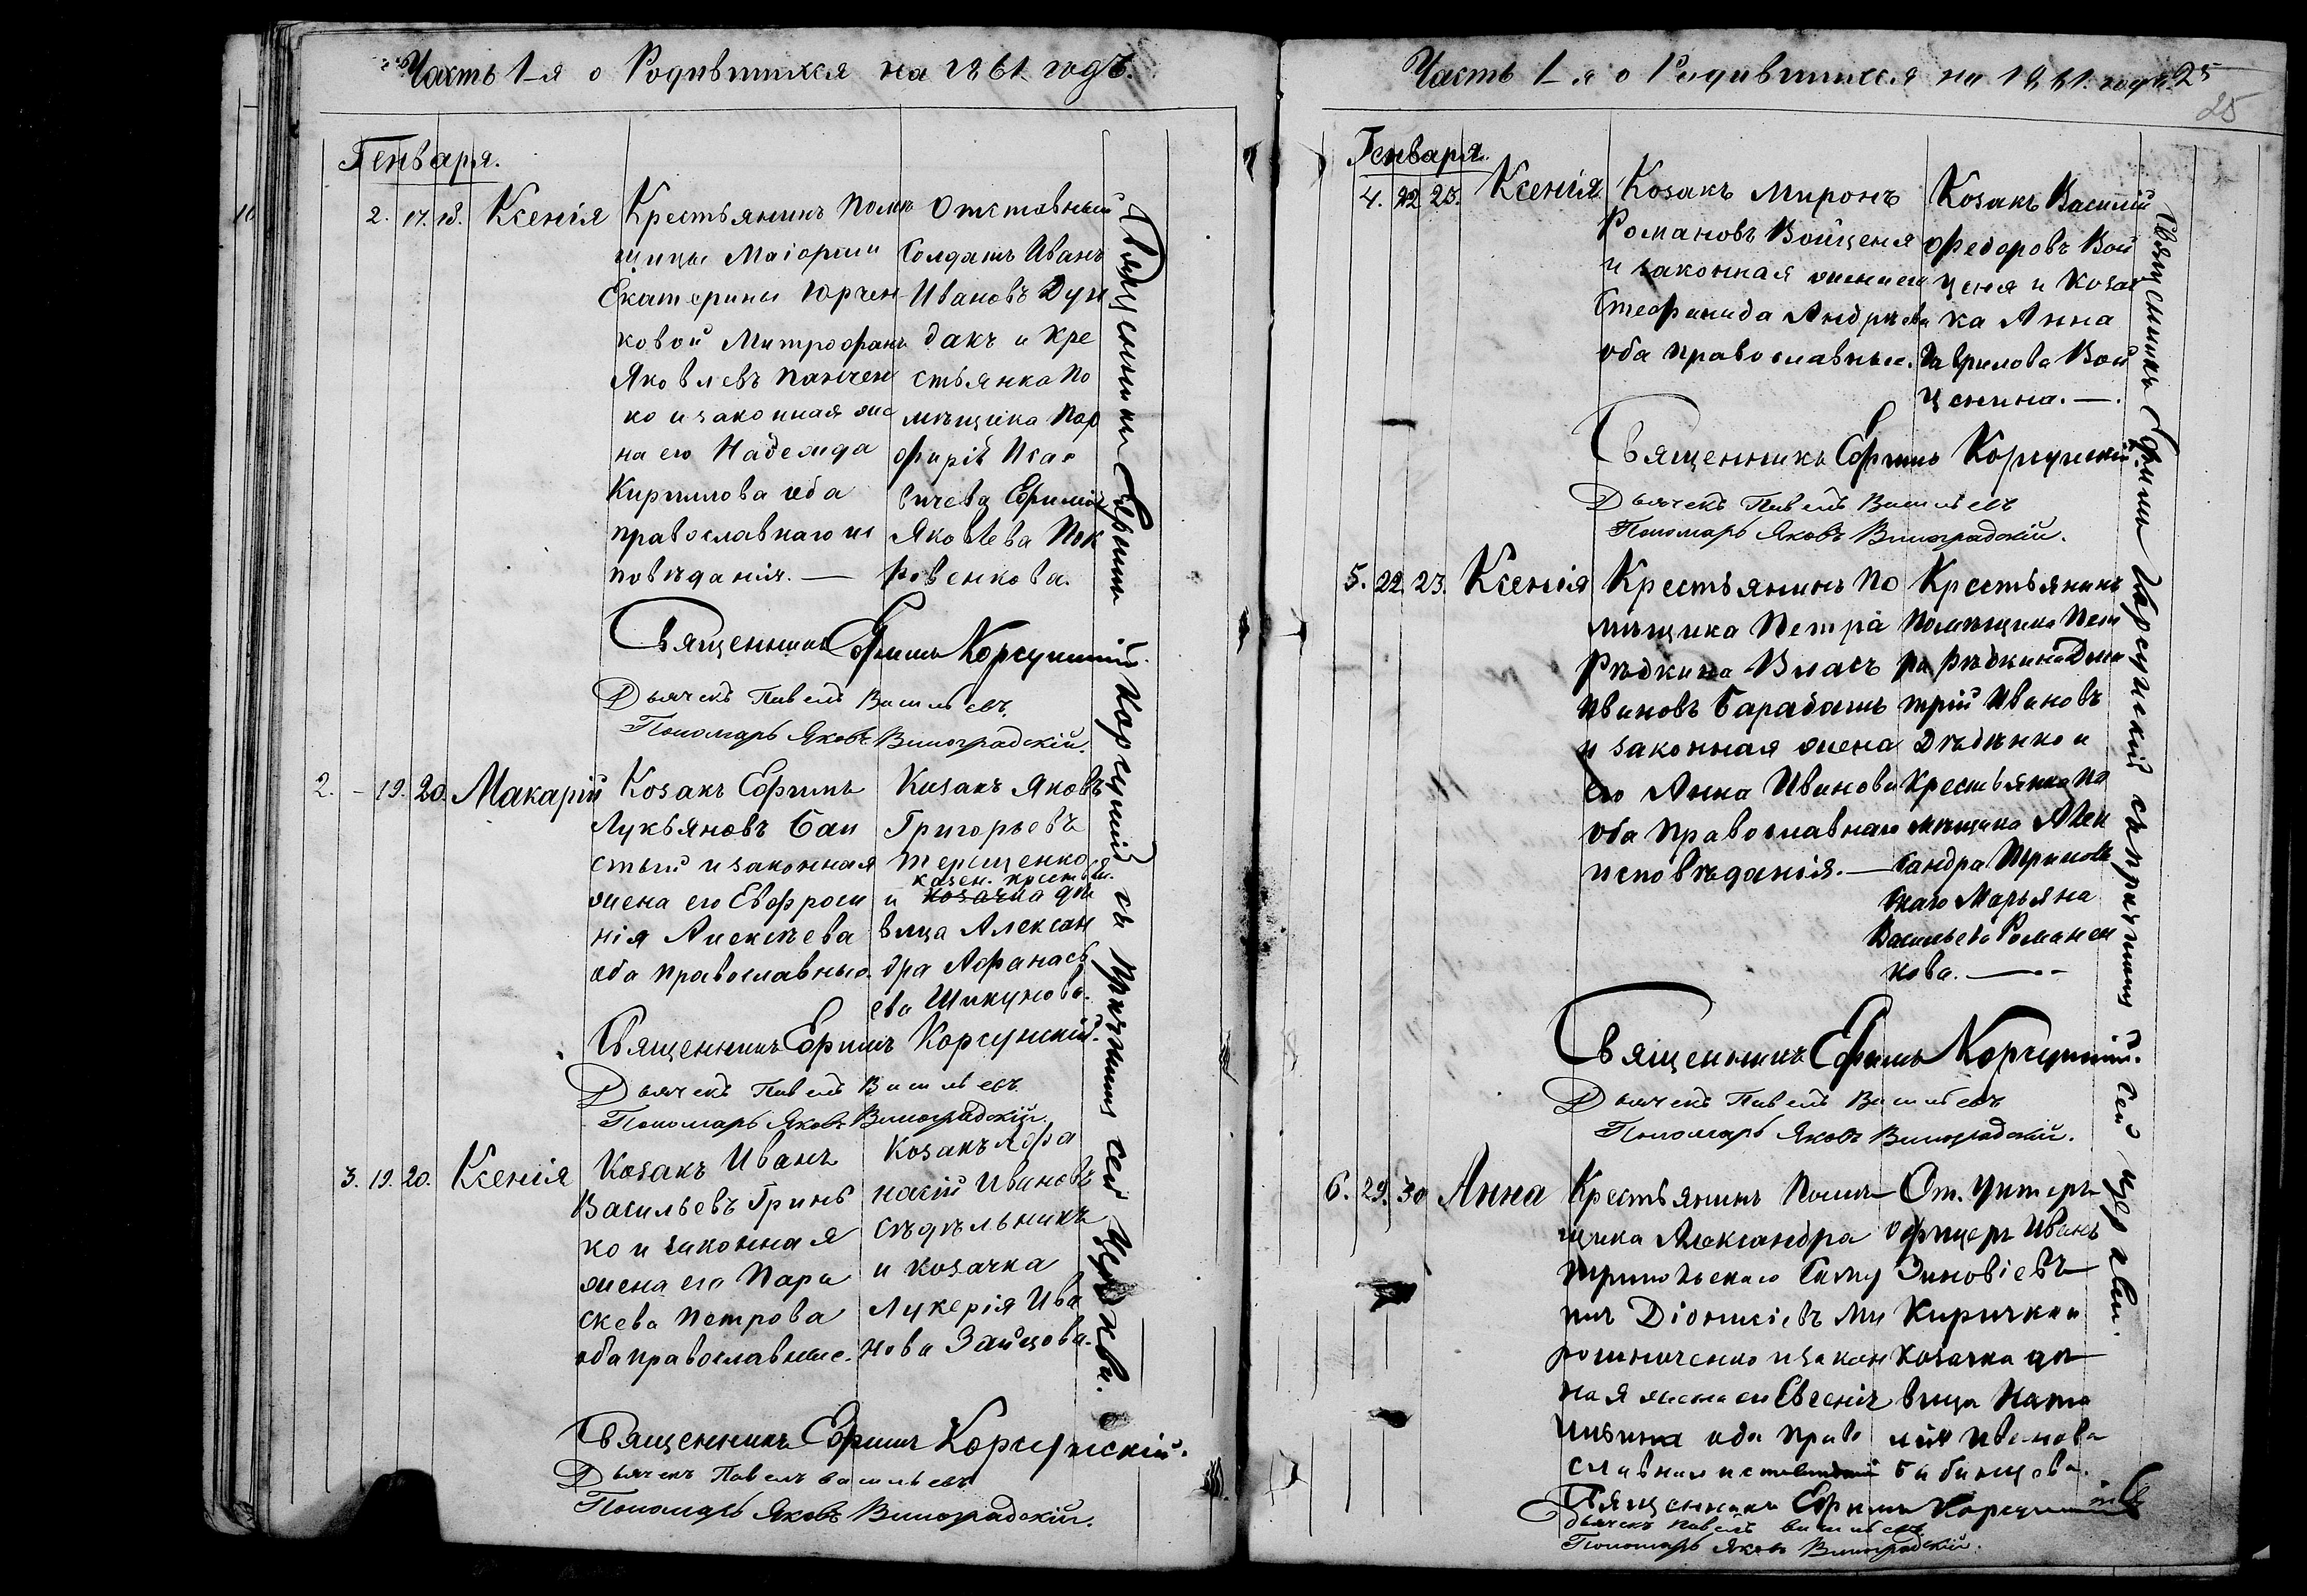 Часть 1-я о Родившихся на 1861 годъ.
Генваря.
2. 17. 18. Ксенія
Крестьянинъ Помѣ
щицы Маіорши
Екатерины Юрчен
ковой Митрофанъ
Яковлевъ Панчен
ко и законная же
на его Надежда
Кириллова оба
православнаго ис
повѣданія. —
Отставный
Солдатъ Иванъ
Ивановъ Дун
дакъ и Кре
стьянка По
мѣщика Пор
фирія Иса
вичева Ефимія
Яковлева Пок
ровенкова.
Священникъ Ефимъ Корсунскій.
Дьячекъ Павелъ Васильевъ.
Пономарь Яковъ Виноградскій.
2. - 19. 20. Макарій
Козакъ Ефимъ
Лукьяновъ Баи
стый и законная
жена его Евфроси
нія Алексѣева
оба православные.
Козакъ Яковъ
Григорьевъ
Терещенко
казен. крестьян.
и козачка дѣ
вица Алексан
дра Афанась
ева Шикунова.
Священникъ Ефимъ Корсунскій.
Дьячекъ Павелъ Васильевъ
Пономарь Яковъ Виноградскій.
3. 19. 20. Ксенія
Козакъ Иванъ
Васильевъ Гринь
ко и законная
жена его Пара
скева Петрова
оба православные.
Козакъ Афа
насій Ивановъ
Сѣдѣльникъ
и козачка
Лукерія Ива
нова Зайцова.
Священникъ Ефимъ Корсунскій.
Дьячекъ Павелъ Васильевъ
Пономарь Яковъ Виноградскій.
Священникъ Ефимъ Корсунскій съ причтомъ сей церкви.
Часть 1-я о Родившихся на 1861. годъ. 25
25
Генваря.
4. 22 23. Ксенія
Козакъ Миронъ
Романовъ Войценя
и законная жена его
Стефанида Андреева
оба православные.
Козакъ Василій
Федоровъ Вой
ценя и Козач
ка Анна
Гаврилова Вой
ценина. —.
Священникъ Ефимъ Корсунскій
Дьячекъ Павелъ Васильевъ
Пономарь Яковъ Виноградскій.
5. 22. 23. Ксенія
Крестьянинъ По
мѣщика Петра
Рѣдкина Власъ
Ивановъ Барабашъ
и законная жена
его Анна Иванова
оба православнаго
исповѣданія. —
Крестьянинъ
Помѣщика Пет
ра Рѣдкина Дми
трій Ивановъ
Дѣденко и
Крестьянка По
мѣщика Алек
сандра Трипольс
каго Марьяна
Васильева Романен
кова. —
Священникъ Ефимъ Корсунскій.
Дьячекъ Павелъ Васильевъ
Пономарь Яковъ Виноградскій.
6. 29. 30 Анна
Крестьянинъ Помѣ
щика Александра
Трипольскаго
Діонисіевъ Ми
рошниченко и закон
ная жена его Евгенія
оба право
славнаго исповѣданія
От. Унтеръ
офицеръ Иванъ
Зиновіевъ
Киричкои
козачка дѣ
вица Ната
лія Иванова
Бабинцова.
Священникъ Ефимъ Корсунскій
Дьячекъ Павелъ Васильевъ
Пономарь Яковъ Виноградскій.
Священникъ Ефимъ Корсунскій съ причтомъ сей церкви.